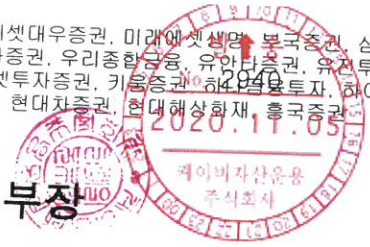 셋대우증권, 미래에셋생명, 부국증권, 삼
증권, 우리종합금융, 유안타증권, 유진투
투자증권, 키움증권, 하나금융투자, 하이
현대차증권, 현대해상화재, 흥국증권
No. 2940
2020.11.05
케이비자산운용
주식회사
부장